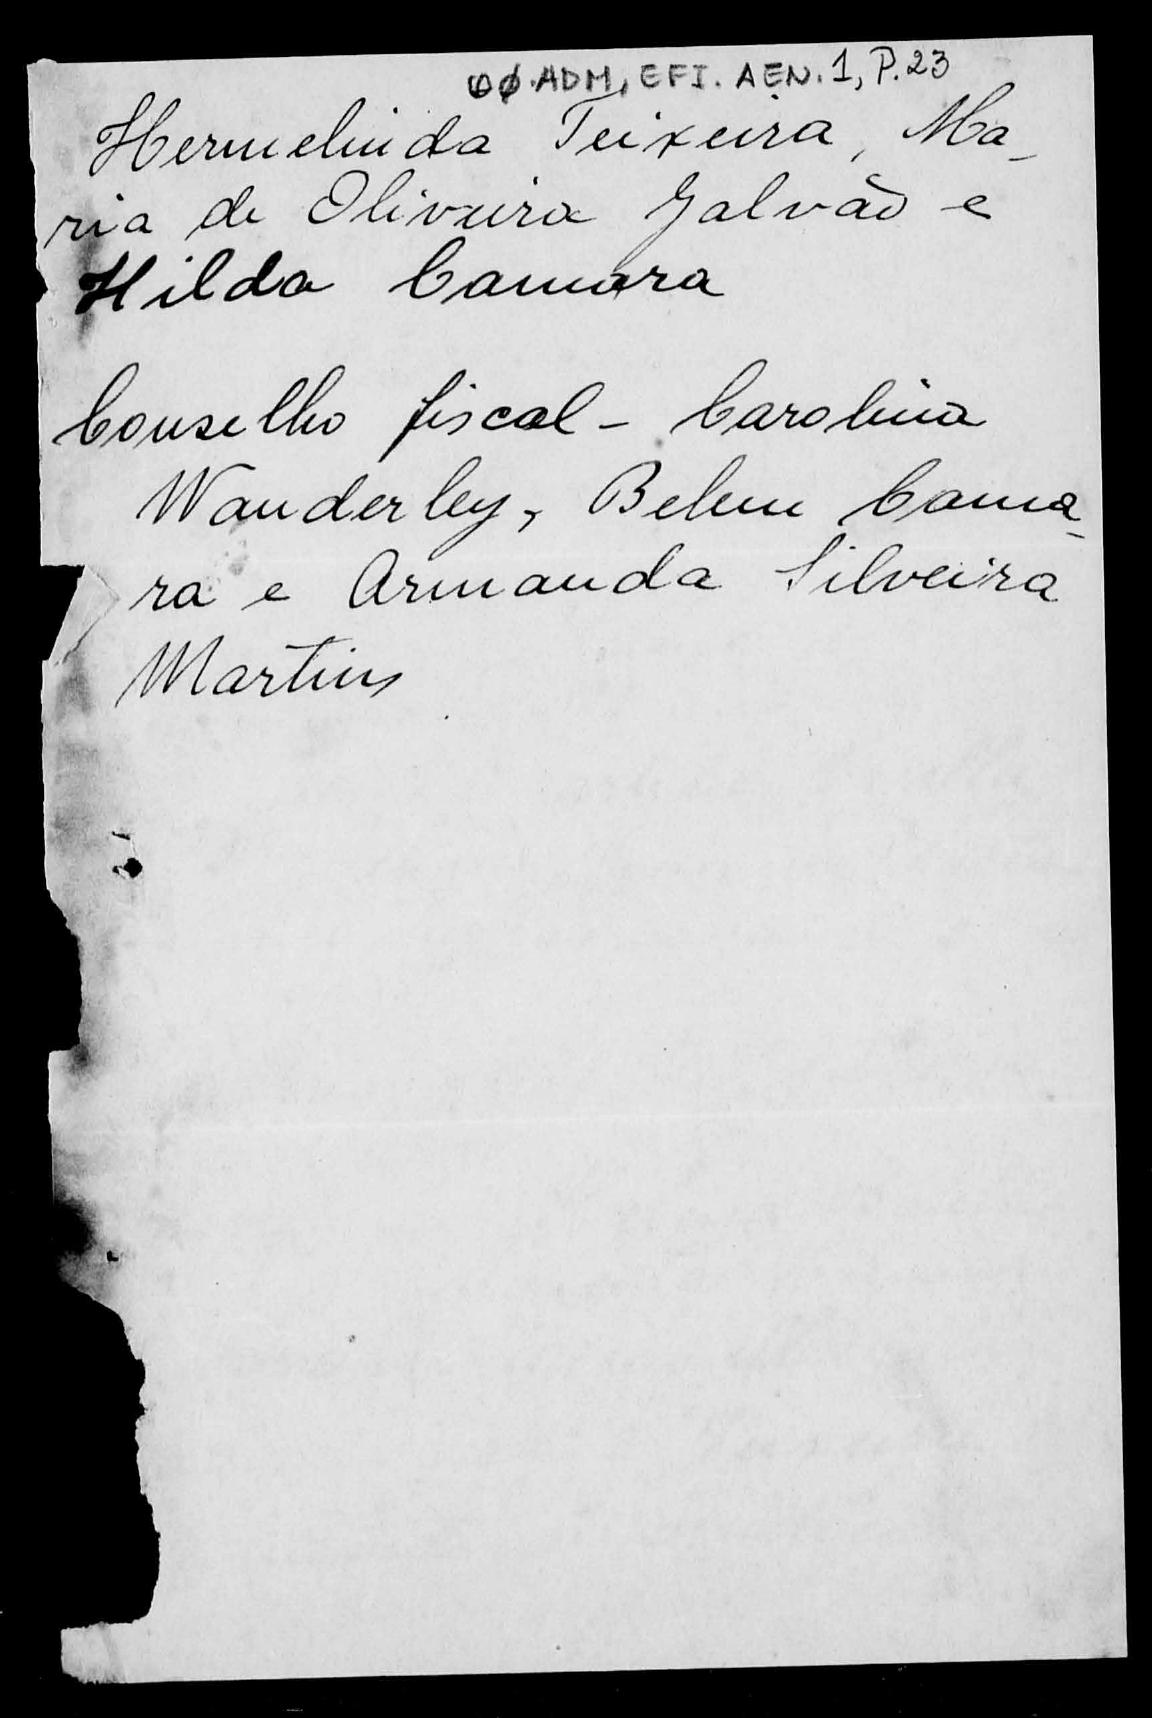 QØ.ADM, EFI. AEN. 1, P.23
Hermelinda Teixeira, Ma-
ria de Oliveira Galvão e
Hilda Camara
Conselho fiscal - Carolina
Wanderley, Belem Cama-
ra e Armanda Silveira
Martins